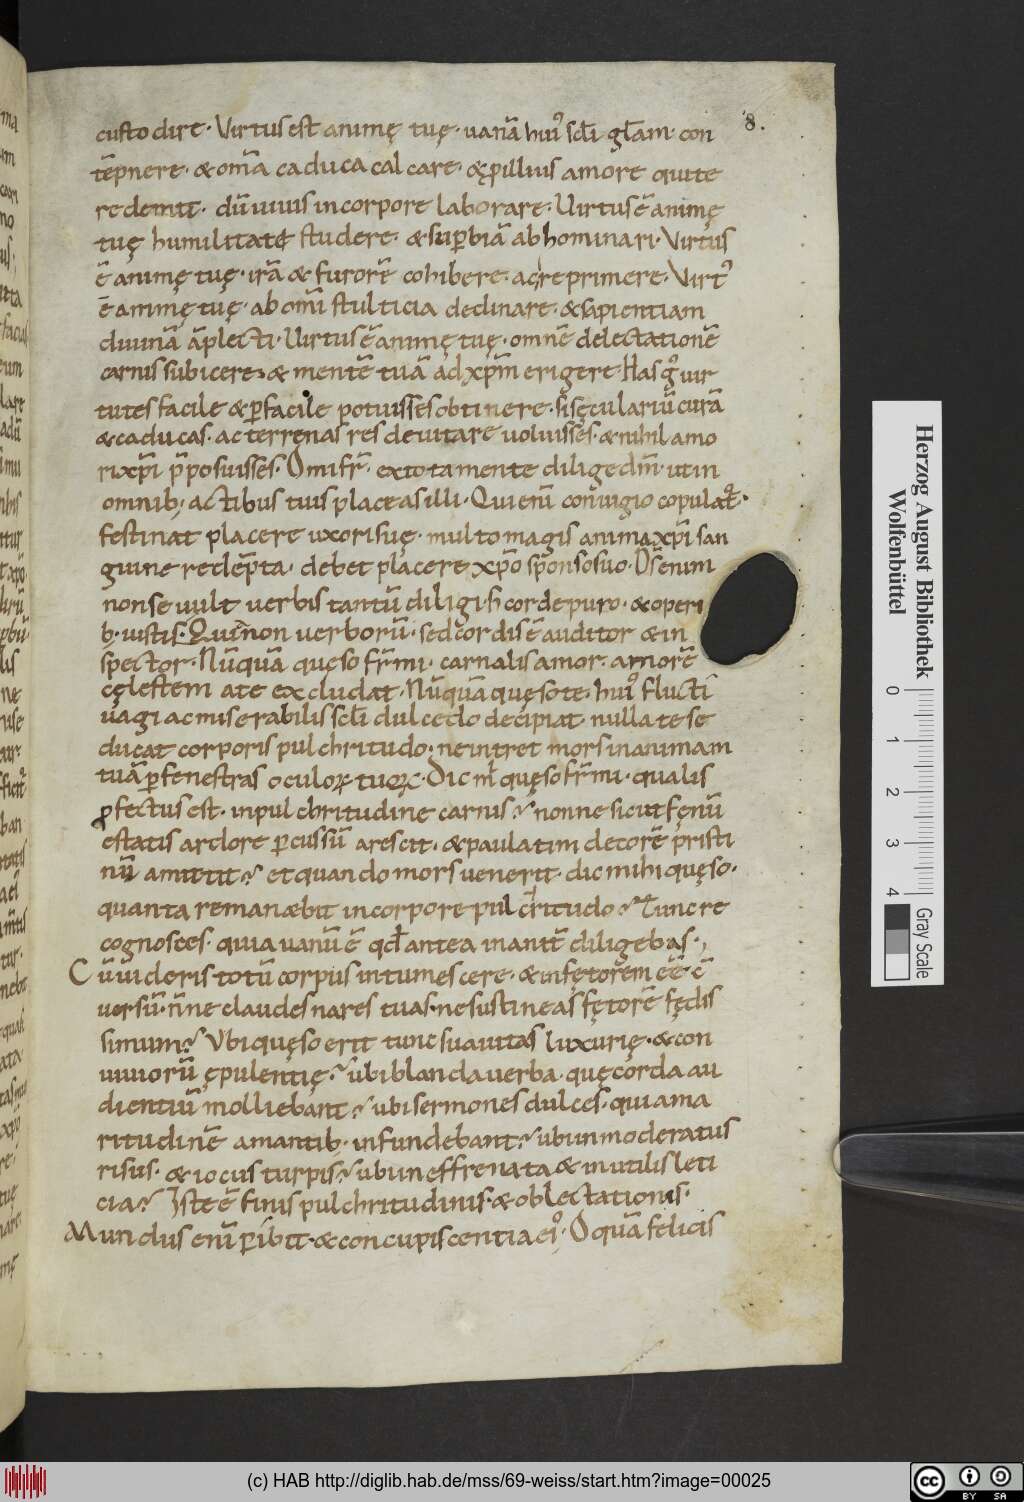 8.
custodire · Virtus est animę tuę · uanā hui᾽ scłi · głam · con
tēpnere · & om̄a caduca calcare · & p illius amore qui te
redemit · dū uiuis in corpore laborare · Uirtus ē animę
tuę humilitate studere · & supbiā abhominari · Virtus
ē animę tuę · irā & furorē cohibere · ac reprimere · Virt᾽
ē animę tuę · ab om̄i stulticia declinare · & sapientiam
diuinā āplecti · Uirtus ē animę tuę · omnē delectationē
carnis subicere · & mentē tuā ad xp̄m erigere · Has g᾽ uir
tutes facile & pfacile potuisses obtinere · si sęculariū curā
& caducas · ac terrenas res deuitare uoluisses · & nihil amo
ri xp̄i p̄posuisses · O mi fr̄ · ex tota mente dilige dm̄ · ut in
omnib; actibus tuis placeas illi · Qui enī coniugio copulat᾽ ·
festinat placere uxori suę · multo magis anima xp̄i san
guine redēpta · debet placere xp̄o sponso suo · D̄s enim
non se uult uerbis tantū diligi · s; corde puro · & operi
b; iustis · Quia non uerborū · sed cordis ē auditor & in
spector · Nūquā quęso fr̄ mi · carnalis amor amorē
cęlestem a te excludat · Nūquā quęso te hui᾽ fluctī
uagi ac miserabilis scłi dulcedo decipiat nulla te se
ducat corporis pulchritudo · ne intret mors in animam
tuā p fenestras oculoꝝ tuoꝝ · Dic m̄ quęso fr̄ mi · qualis
pfectus est · in pulchritudine carnis? nonne sicut fęnū
estatis ardore pcussū arescit · & paulatim decorē pristi
nū amittit? et quando mors uenerit · dic mihi quęso ·
quanta remanæbit in corpore pulchritudo? Tunc re
cognosces · quia uanū ē qđ antea inanit̄ diligebas ·
Cū uideris totū corpus intumescere · & in fętorem ēē cō
uersū · n̄ne claudes nares tuas · ne sustineas fętorē fędis
simum? Vbi quęso erit tunc suauitas luxurię · & con
uiuiorū ępulentię? ubi blanda uerba · quę corda au
dientiū molliebant? ubi sermones dulces · qui ama
ritudinē amantib; infundebant? ubi inmoderatus
risus · & iocus turpis? ubi ineffrenata & inutilis leti
cia? Iste ē finis pulchritudinis · & oblectationis ·
Mundus enī pibit · & concupiscentia ei᾽ · O quā felicis
Herzog August Bibliothek
Wolfenbüttel
0 1 2 3 4
Gray Scale
(c) HAB http://diglib.hab.de/mss/69-weiss/start.htm?image=00025
cc BY SA